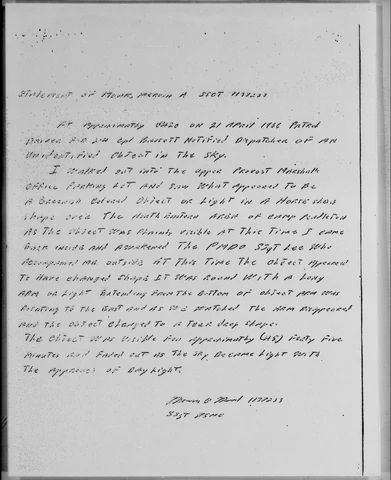 Statement of Monk, Mervin A SSGT 1177233
At Approximatly 0420 on 21 April 1966 Patrol
Driver F-B 24 Cpl Barrett Notified Dispatcher of AN
Unidentified Object in the Sky.
I walked out into the upper Provost Marshalls
Office Parking Lot and Saw What Appeared to Be
A Greenish Colored Object or Light in A Horse shoe
shape over The North Eastern AREA of camp Pendleton
As the Object was Plainly visible at This Time I came
Back inside and Awakened The PMDO SSgt Lee Who
Accompanied me outside. At This Time the Object Appeared
To Have changed shape It was Round With A Long
ARM or Light Extending From the Bottom of object ARM was
Pointing to the East and As we watched The ARM Disappeared
And the Object changed to A Tear drop shape.
The Object was Visible For Approximatly (45) Forty Five
Minutes and Faded out As The Sky Became Light With
The Approach of Day Light.
1177233
SSgt USMC